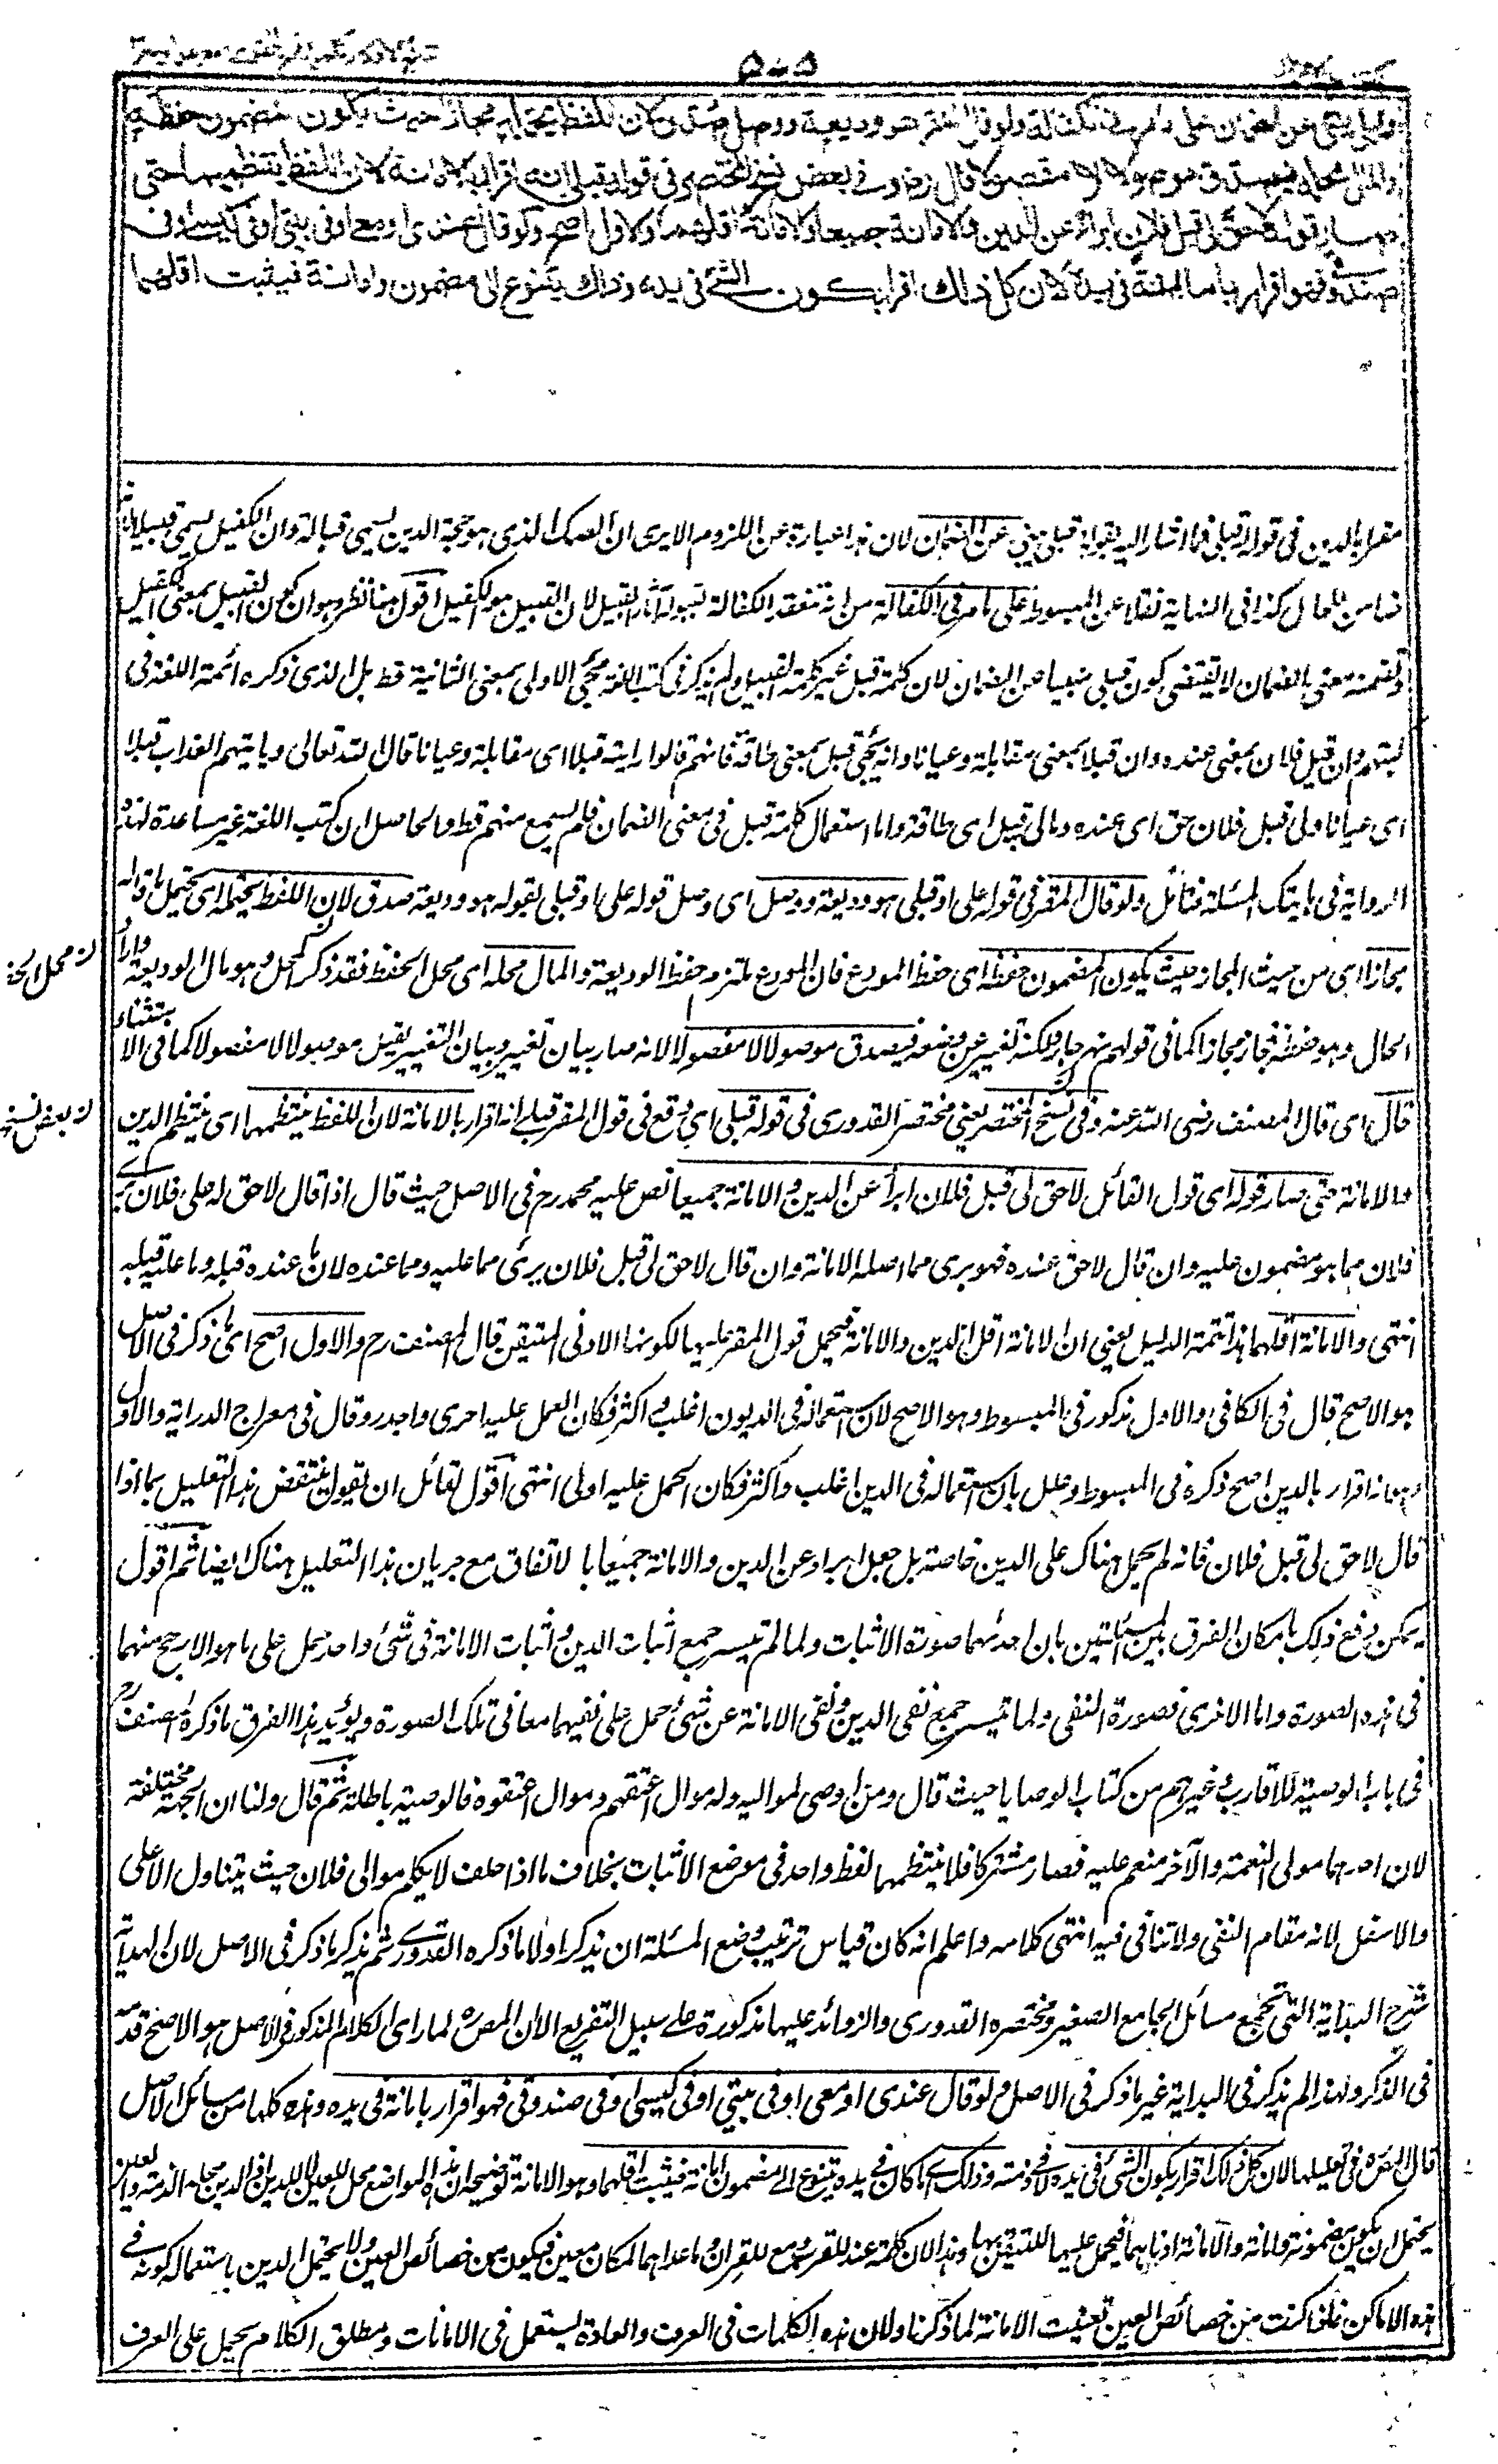 ٥٠٥
وقبلي ينبئ عن الضمان على ما مر في الكفالة ولو قال المقر هو وديعة ووصل صدق لان اللفظ يحتمله مجازا حيث يكون المضمون حفظه
والمال محله فيصدق موصولا لا مفصولا قال رض وفي بعض نسخ المختصر في قوله قبلي انه اقرار بالامانة لان اللفظ ينتظمهما حتى
صار قوله لا حق لي قبل فلان ابراء عن الدين والامانة جميعا والامانة اقلهما والاول اصح ولو قال عندي او معي او في بيتي او في كيسي او في
صندوقي فهو اقرار بامانة في يده لان كل ذلك اقرار بكون الشئ في يده وذلك يتنوع الى مضمون وامانة فيثبت اقلهما
مقرا بالدين في قوله قبلي فما اشار اليه بقوله وقبلي ينبئ عن الضمان لان هذا عبارة عن اللزوم الا يرى ان الصك الذي هو حجة الدين يسمى قبالة وان الكفيل يسمى قبيلا لانه
ضامن للمال كذا في النهاية نقلا عن المبسوط على ما مر في الكفالة من انه تنعقد الكفالة بقوله انا قبيل لان القبيل هو الكفيل اقول ههنا نظر وهو ان كون القبيل بمعنى الكفيل
وتضمنه معنى الضمان لا يقتضي كون قبلي منبيا عن الضمان لان كلمة قبل غير كلمة القبيل ولم يذكر في كتب اللغة مجئ الاولى بمعنى الثانية قط بل الذي ذكره ائمة اللغة في
كتبهم ان قبل فلان بمعنى عنده وان قبلا بمعنى مقابلة وعيانا وانه يجئ قبل بمعنى طاقة فانهم قالوا رايته قبلا اى مقابلة وعيانا قال الله تعالى او ياتيهم العذاب قبلا
اى عيانا ولي قبل فلان حق اى عنده ومالي به قبل اى طاقة واما استعمال كلمة قبل في معنى الضمان فلم يسمع منهم قط والحاصل ان كتب اللغة غير مساعدة لهذه
الرواية في هاتيك المسئلة فتامل ولو قال المقر في قوله على او قبلي هو وديعة ووصل اى وصل قوله على او قبلي بقوله هو وديعة صدق لان اللفظ يحتمله اى يحتمل ما قاله
مجازا اى من حيث المجاز حيث يكون المضمون حفظه اى حفظ المودع فان المودع ملتزم حفظ الوديعة والمال محله اى محل الحفظ فقد ذكر المحل وهو مال الوديعة واراد
الحال وهو حفظه فجاز مجازا كما في قولهم نهر جار لكنه تغيير عن وضعه فيصدق موصولا لا مفصولا لانه صار بيان تغيير وبيان التغيير يقبل موصولا لا مفصولا كما في الاستثناء
قال اى قال المصنف رضى الله عنه وفي نسخ المختصر يعني مختصر القدوري في قوله قبلي اى وقع في قول المقر قبلي انه اقرار بالامانة لان اللفظ ينتظمهما اى ينتظم الدين
والامانة حتى صار قوله اى قول القائل لا حق لي قبل فلان ابراء عن الدين والامانة جميعا نص عليه محمد رح في الاصل حيث قال اذا قال لا حق له على فلان برئ
فلان مما هو مضمون عليه وان قال لا حق عنده فهو برئ مما اصله الامانة وان قال لا حق لي قبل فلان برئ مما عليه ومما عنده لان ما عنده قبله وما عليه قبله
انتهى والامانة اقلهما هذا تتمة الدليل يعني ان الامانة اقل من الدين والامانة فيحمل قول المقر عليها لكونها الادنى المتيقن قال المصنف رح والاول اصح اى ما ذكر في الاصل
هو الاصح قال في الكافي والاول مذكور في المبسوط وهو الاصح لان استعماله في الديون اغلب واكثر فكان العمل عليه احرى واجدر وقال في معراج الدراية والاول
وهو انه اقرار بالدين اصح ذكره في المبسوط وعلل بان استعماله في الدين اغلب واكثر فكان الحمل عليه اولى انتهى اقول لقائل ان يقول ينتقض هذا التعليل بما اذا
قال لا حق لي قبل فلان فانه لم يحمل هناك على الدين خاصة بل جعل ابراء عن الدين والامانة جميعا بالاتفاق مع جريان هذا التعليل هناك ايضا ثم اقول
يمكن دفع ذلك بامكان الفرق بين المسئلتين بان احدهما صورة الاثبات ولما لم تيسر جمع اثبات الدين واثبات الامانة في شئ واحد حمل على ما هو الارجح منهما
في هذه الصورة واما الاخرى فصورة النفي ولما تيسر جمع نفي الدين ونفي الامانة عن شئ حمل على نفيهما معا في تلك الصورة ويؤيد هذا الفرق ما ذكره المصنف رح
في باب الوصية للاقارب وغيرهم من كتاب الوصايا حيث قال ومن اوصى لمواليه وله موال اعتقهم وموال اعتقوه فالوصية باطلة ثم قال ولنا ان الجهة مختلفة
لان احدهما مولى النعمة والآخر منعم عليه فصار مشتركا فلا ينتظمهما لفظ واحد في موضع الاثبات بخلاف ما اذا حلف لا يكلم موالى فلان حيث يتناول الاعلى
والاسفل لانه مقام النفي ولا تنافي فيه انتهى كلامه واعلم انه كان قياس ترتيب وضع المسئلة ان يذكر اولا ما ذكره القدوري ثم يذكر ما ذكر في الاصل لان الهداية
شرح البداية التي تجمع مسائل الجامع الصغير ومختصر القدوري والزوائد عليها مذكورة على سبيل التفريع الا ان المص ره لما راى الكلام المذكور في الاصل هو الاصح قدمه
في الذكر ولهذا لم يذكر في البداية غير ما ذكر في الاصل ولو قال عندي او معي او في بيتي او في كيسي او في صندوقي فهو اقرار بامانة في يده وهذه كلها من مسائل الاصل
قال المص ره في تعليلها لان كل ذلك اقرار بكون الشئ في يده لا في ذمته وذلك اى ما كان في يده يتنوع الى مضمون وامانة فيثبت اقلهما وهو الامانة توضيحه ان هذه المواضع محل للعين لا للدين اذ الدين محله الذمة والعين
يحتمل ان يكون مضمونة وامانة والامانة ادناهما فيحمل عليها للتيقن بها وهذا لان كلمة عند للقرب ومع للقران وما عداهما لمكان معين فيكون من خصائص العين ولا يحتمل الدين باستعماله كونه في
هذه الاماكن فاذا كانت من خصائص العين تعينت الامانة لما ذكرنا ولان هذه الكلمات في العرف والعادة يستعمل في الامانات ومطلق الكلام يحمل على العرف